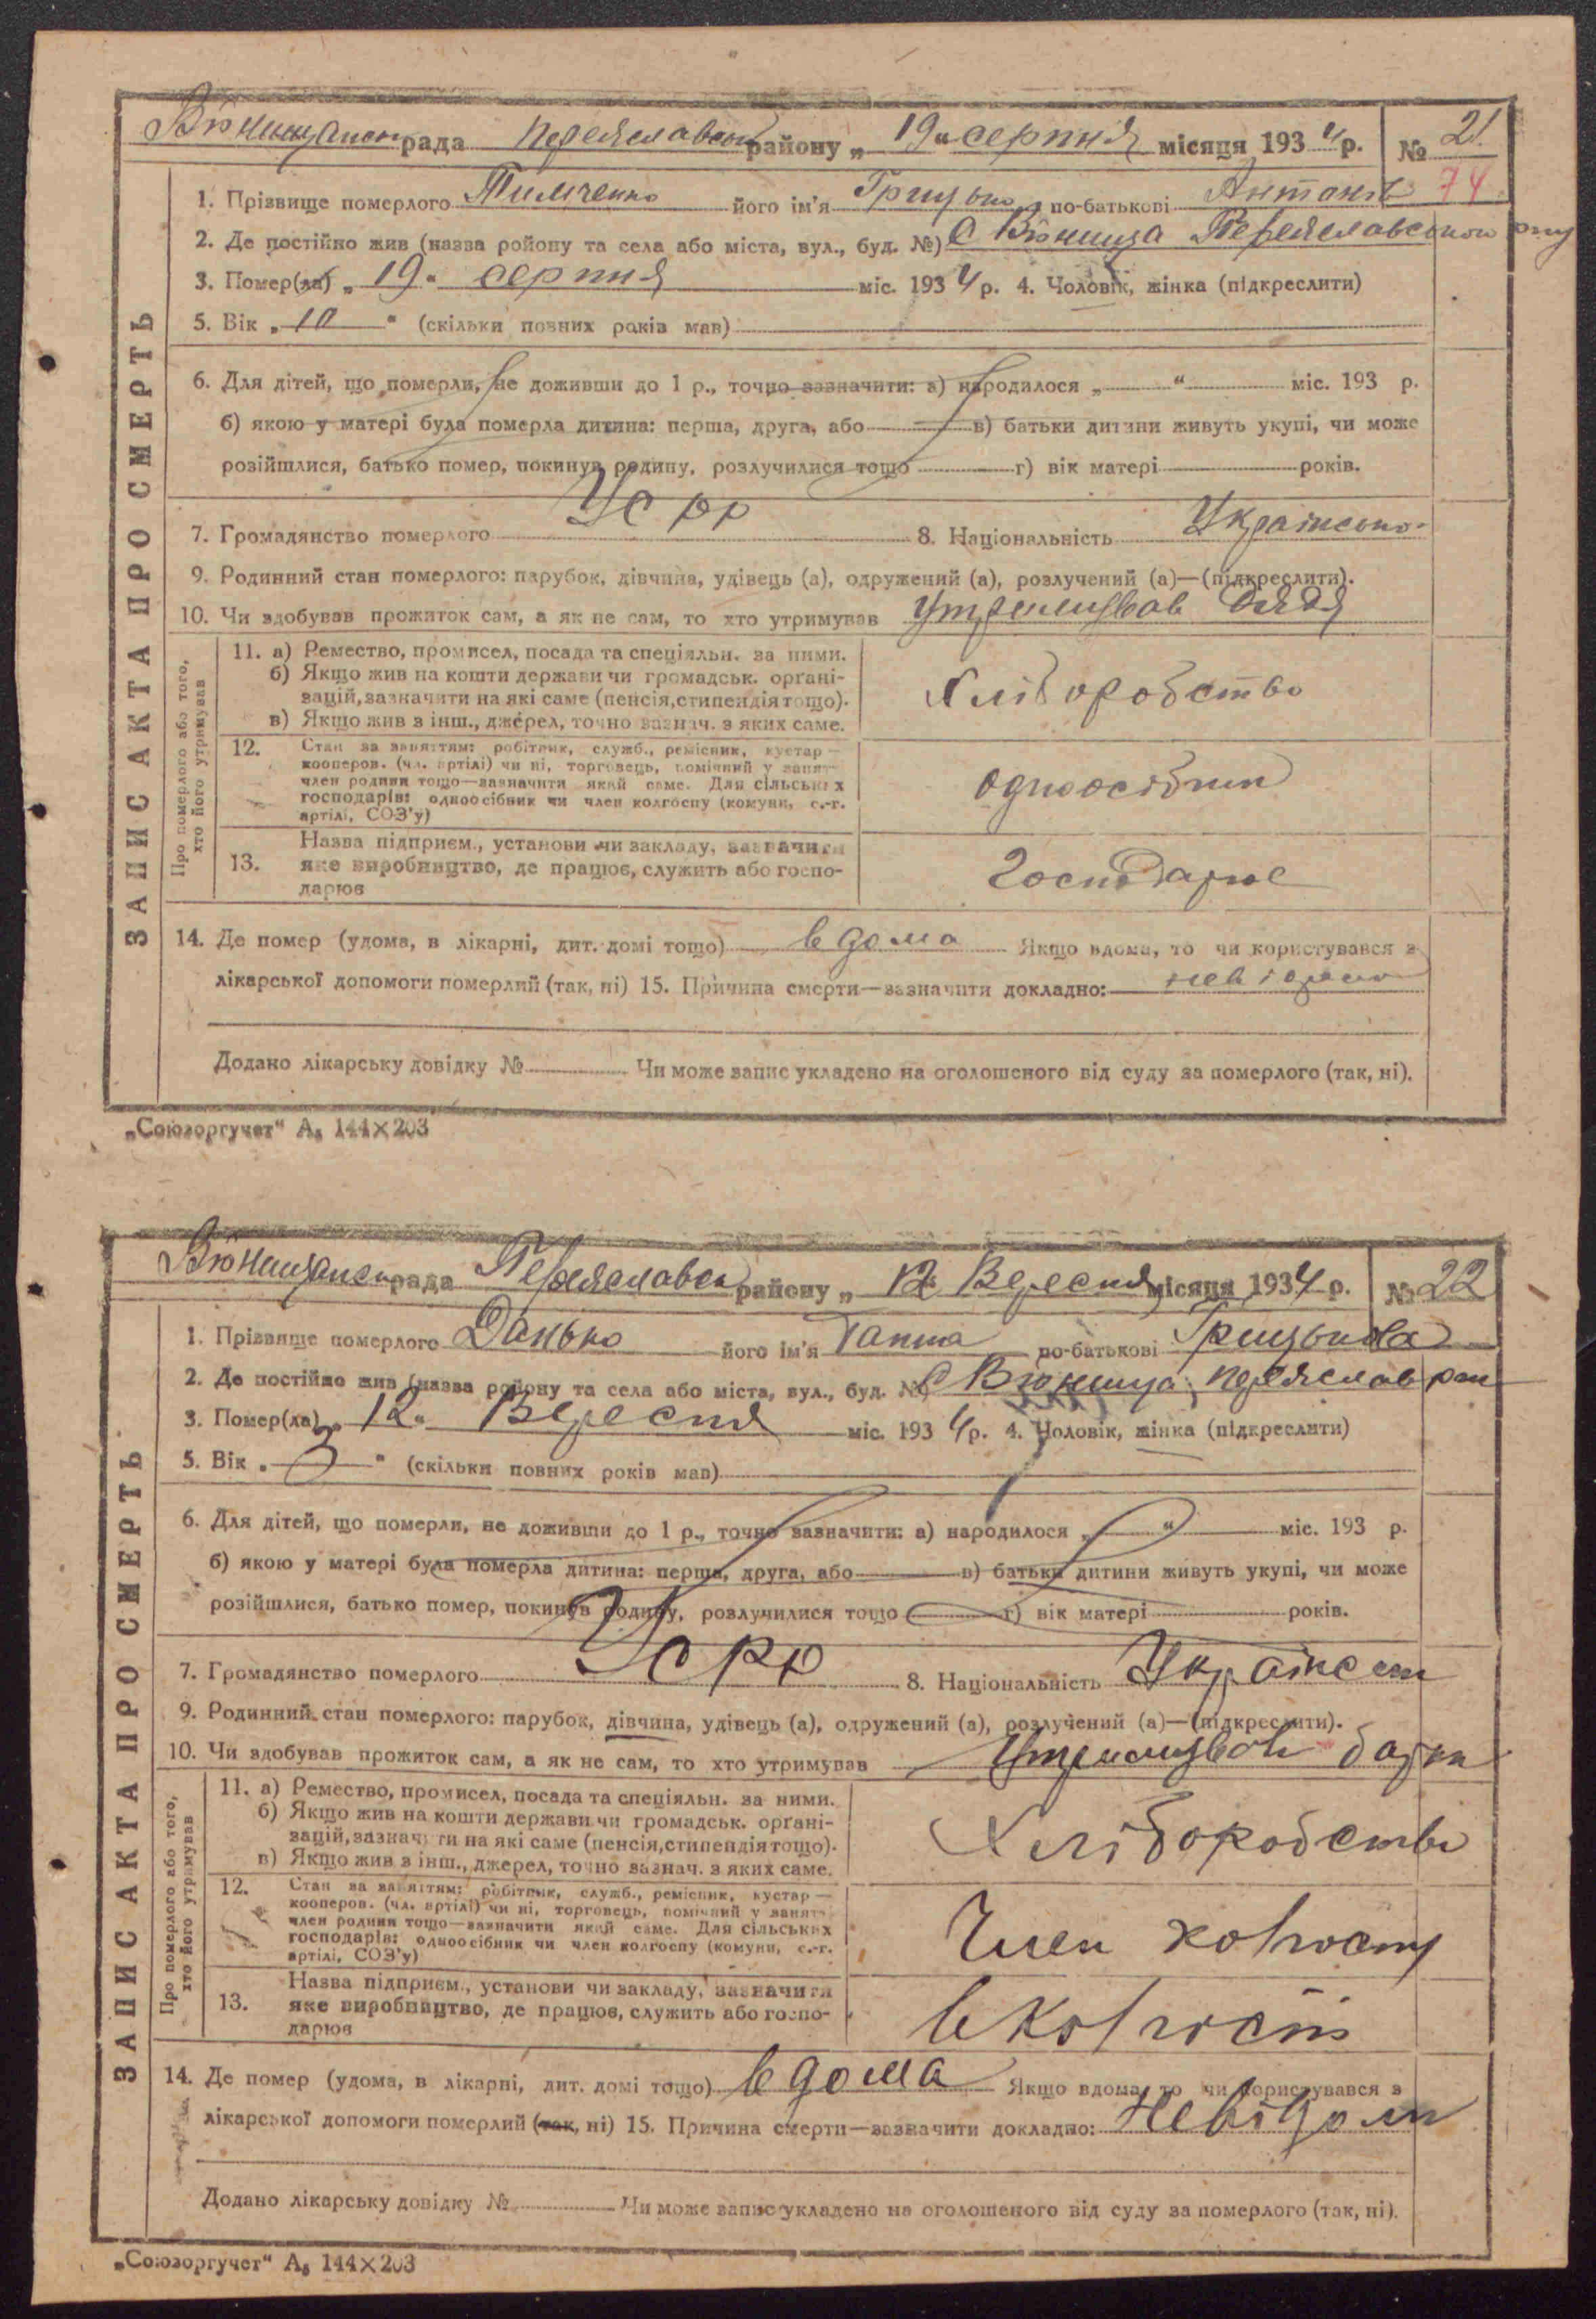 Вюнищанськ рада Переяславськ району „ 19 “ серпня місяця 1934 р. № 21
74
1. Прізвище померлого Тимченко його ім'я Грицько по-батькові Антонів
2. Де постійно жив (назва ройону та села або міста, вул., буд. №) С Вюнища Переяславського р-ну
3. Помер(ла) „ 19 “ серпня міс. 1934 р. 4. Чоловік, жінка (підкреслити)
5. Вік „ 10 “ (скільки повних років мав)
6. Для дітей, що померли, не доживши до 1 р., точно зазначити: а) народилося „ “ міс. 193 р.
б) якою у матері була померла дитина: перша, друга, або в) батьки дитини живуть укупі, чи може
розійшлися, батько помер, покинув родину, розлучилися тощо г) вік матері років.
7. Громадянство померлого УСРР 8. Національність Українсько
9. Родинний стан померлого: парубок, дівчина, удівець (а), одружений (а), розлучений (а)—(підкреслити).
10. Чи здобував прожиток сам, а як не сам, то хто утримував утримував дядя
ЗАПИС АКТА ПРО СМЕРТЬ
Про померлого або того, хто його утримував
11. а) Ремество, промисел, посада та спеціяльн. за ними.
б) Якщо жив на кошти держави чи громадськ. органі-
зацій, зазначити на які саме (пенсія, стипендія тощо).
в) Якщо жив з інш., джерел, точно зазнач. з яких саме.
Хліборобство
12. Стан за заняттям: робітник, служб., ремісник, кустар—
кооперов. (чл. артілі) чи ні, торговець, помічний у занят.
член родини тощо—зазначити який саме. Для сільських
господарів: одноосібник чи член колгоспу (комуни, с.-г.
артілі, СОЗ'у)
одноосібник
13. Назва підприєм., установи чи закладу, зазначити
яке виробництво, де працює, служить або госпо-
дарює
Господарює
14. Де помер (удома, в лікарні, дит. домі тощо) в дома Якщо вдома, то чи користувався з
лікарської допомоги померлий (так, ні) 15. Причина смерти—зазначити докладно: невідомо
Додано лікарську довідку № Чи може запис укладено на оголошеного від суду за померлого (так, ні).
„Союзоргучет“ А₅ 144×203
Вюнищанськ рада Переяславськ району „ 12 Вересня місяця 1934 р. № 22
1. Прізвище померлого Данько його ім'я Ганна по-батькові Грицькова
2. Де постійно жив (назва ройону та села або міста, вул., буд. №) С Вюнища Переяслав рну
3. Помер(ла) „ 12 “ Вересня міс. 1934 р. 4. Чоловік, жінка (підкреслити)
5. Вік „ 3 “ (скільки повних років мав)
6. Для дітей, що померли, не доживши до 1 р., точно зазначити: а) народилося „ “ міс. 193 р.
б) якою у матері була померла дитина: перша, друга, або в) батьки дитини живуть укупі, чи може
розійшлися, батько помер, покинув родину, розлучилися тощо г) вік матері років.
7. Громадянство померлого УСРР 8. Національність Українськ
9. Родинний стан померлого: парубок, дівчина, удівець (а), одружений (а), розлучений (а)—(підкреслити).
10. Чи здобував прожиток сам, а як не сам, то хто утримував Утримував батьк
ЗАПИС АКТА ПРО СМЕРТЬ
Про померлого або того, хто його утримував
11. а) Ремество, промисел, посада та спеціяльн. за ними.
б) Якщо жив на кошти держави чи громадськ. органі-
зацій, зазначити на які саме (пенсія, стипендія тощо).
в) Якщо жив з інш., джерел, точно зазнач. з яких саме.
Хліборобство
12. Стан за заняттям: робітник, служб., ремісник, кустар—
кооперов. (чл. артілі) чи ні, торговець, помічний у занят.
член родини тощо—зазначити який саме. Для сільських
господарів: одноосібник чи член колгоспу (комуни, с.-г.
артілі, СОЗ'у)
Член колгоспу
13. Назва підприєм., установи чи закладу, зазначити
яке виробництво, де працює, служить або госпо-
дарює
в Колгоспі
14. Де помер (удома, в лікарні, дит. домі тощо) в дома Якщо вдома, то чи користувався з
лікарської допомоги померлий (так, ні) 15. Причина смерти—зазначити докладно: Невідомо
Додано лікарську довідку № Чи може запис укладено на оголошеного від суду за померлого (так, ні).
„Союзоргучет“ А₅ 144×203